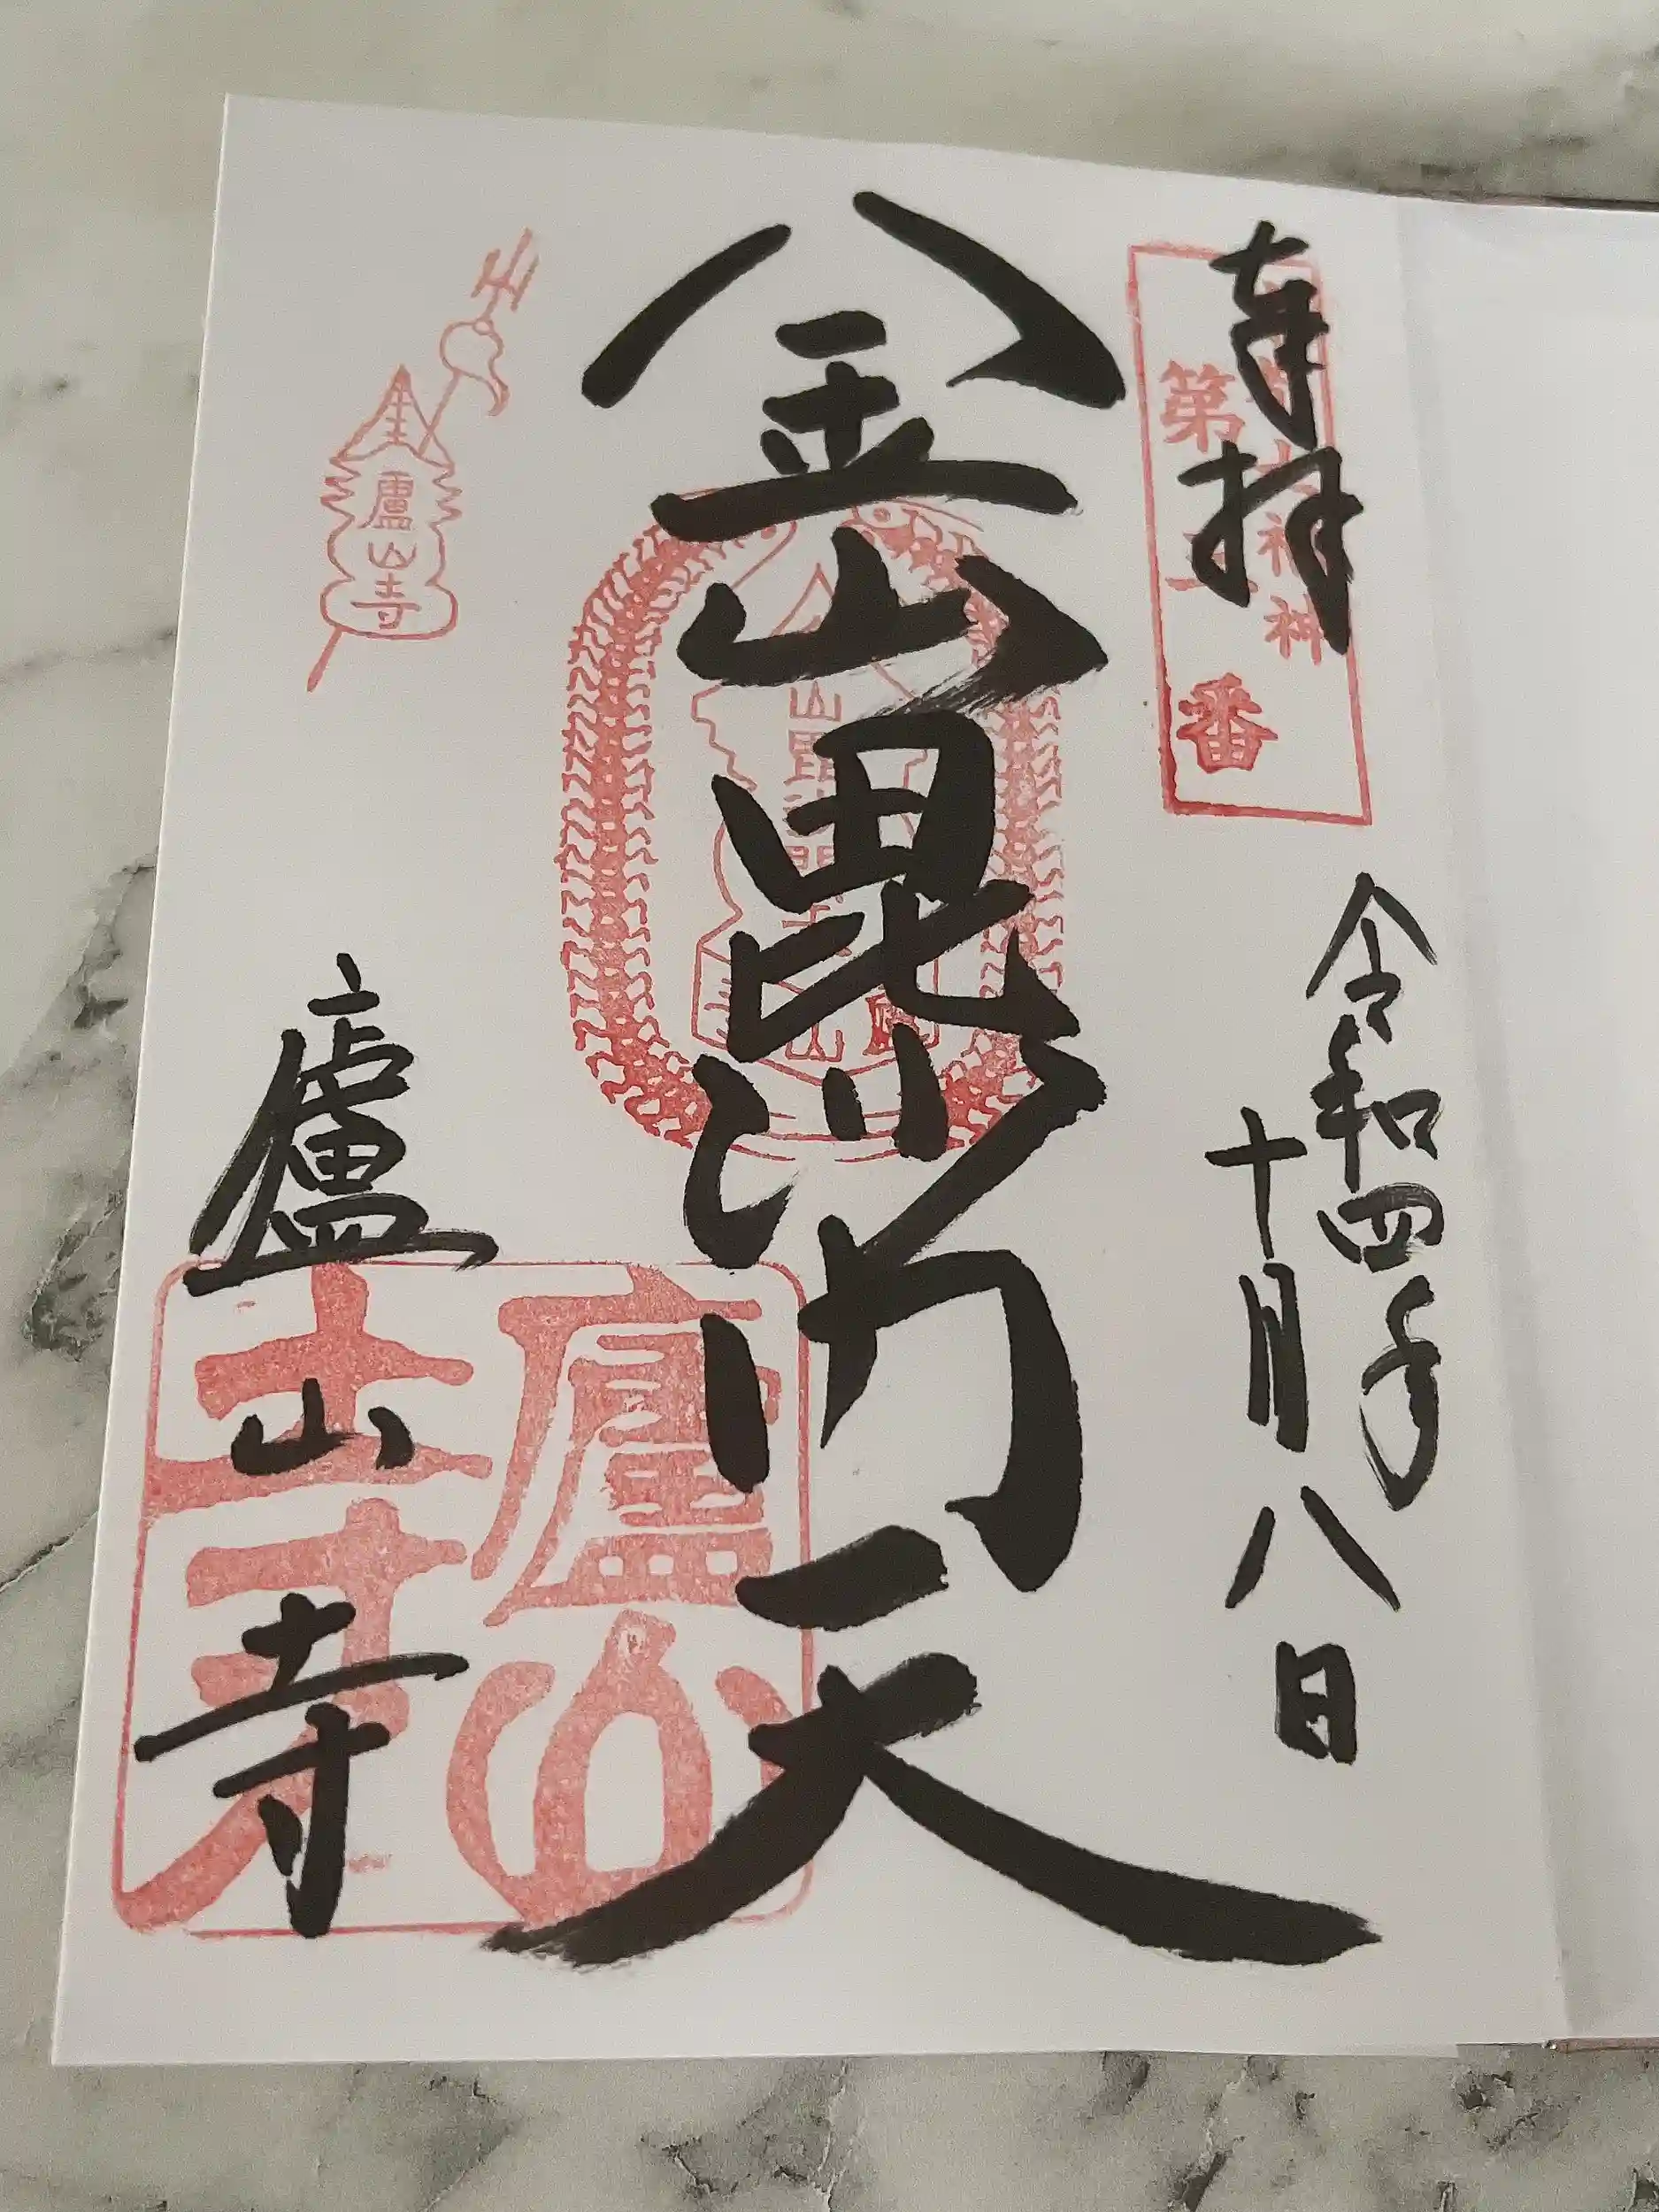 奉拝
第
番
令和四年
十月八日
金山毘沙門天
廬山寺
廬山寺
廬山寺